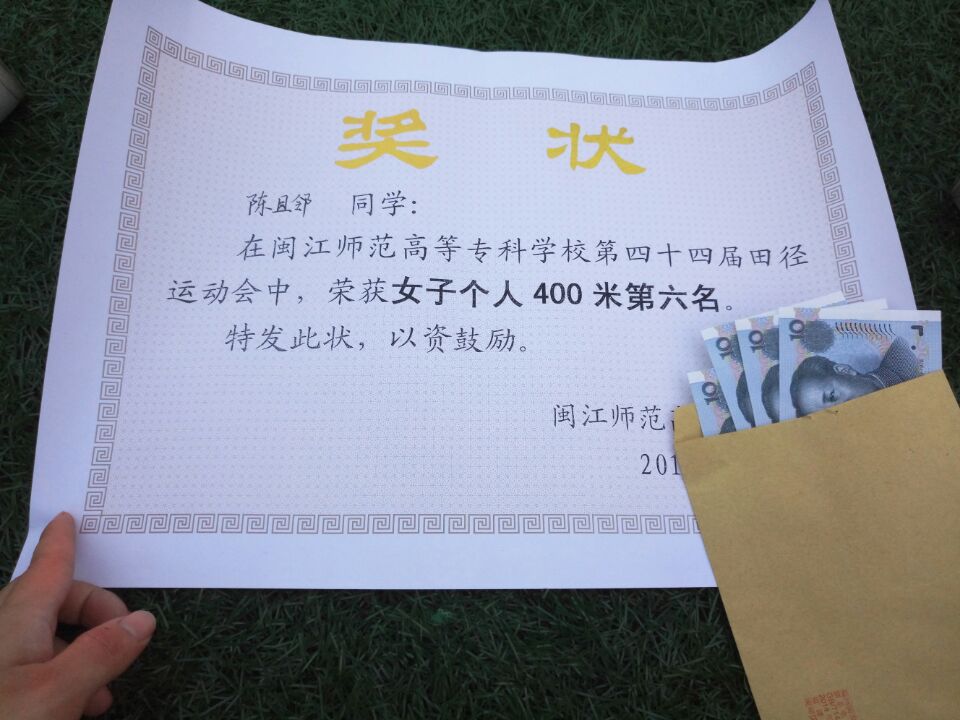 奖 状
陈且邻 同学:
在闽江师范高等专科学校第四十四届田径
运动会中，荣获女子个人 400 米第六名。
特发此状，以资鼓励。
闽江师范
201
10
10
10
10